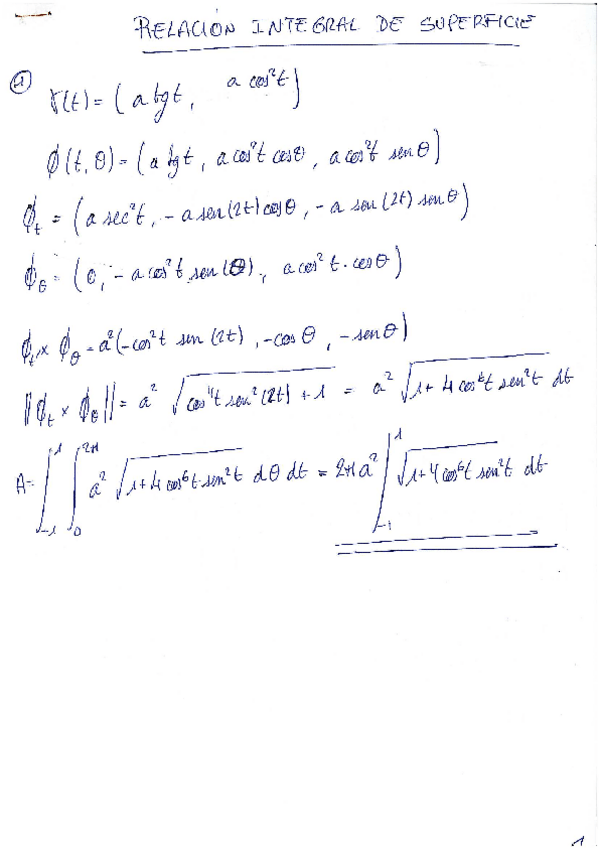 RELACIÓN INTEGRAL DE SUPERFICIE
① γ(t) = (a tgt, a cos²t)
ϕ(t, θ) = (a tgt, a cos²t cosθ, a cos²t senθ)
ϕ_t = (a sec²t, -a sen(2t) cosθ, -a sen(2t) senθ)
ϕ_θ = (0, -a cos²t sen(θ), a cos²t·cosθ)
ϕ_t x ϕ_θ = a²(-cos²t sen(2t), -cosθ, -senθ)
||ϕ_t x ϕ_θ|| = a² √(cos⁴t sen²(2t) + 1) = a² √(1 + 4 cos⁶t sen²t) dt
A = ∫_{-1}^{1} ∫_0^{2π} a² √(1 + 4 cos⁶t·sen²t) dθ dt = 2π a² ∫_{-1}^{1} √(1 + 4 cos⁶t sen²t) dt
1